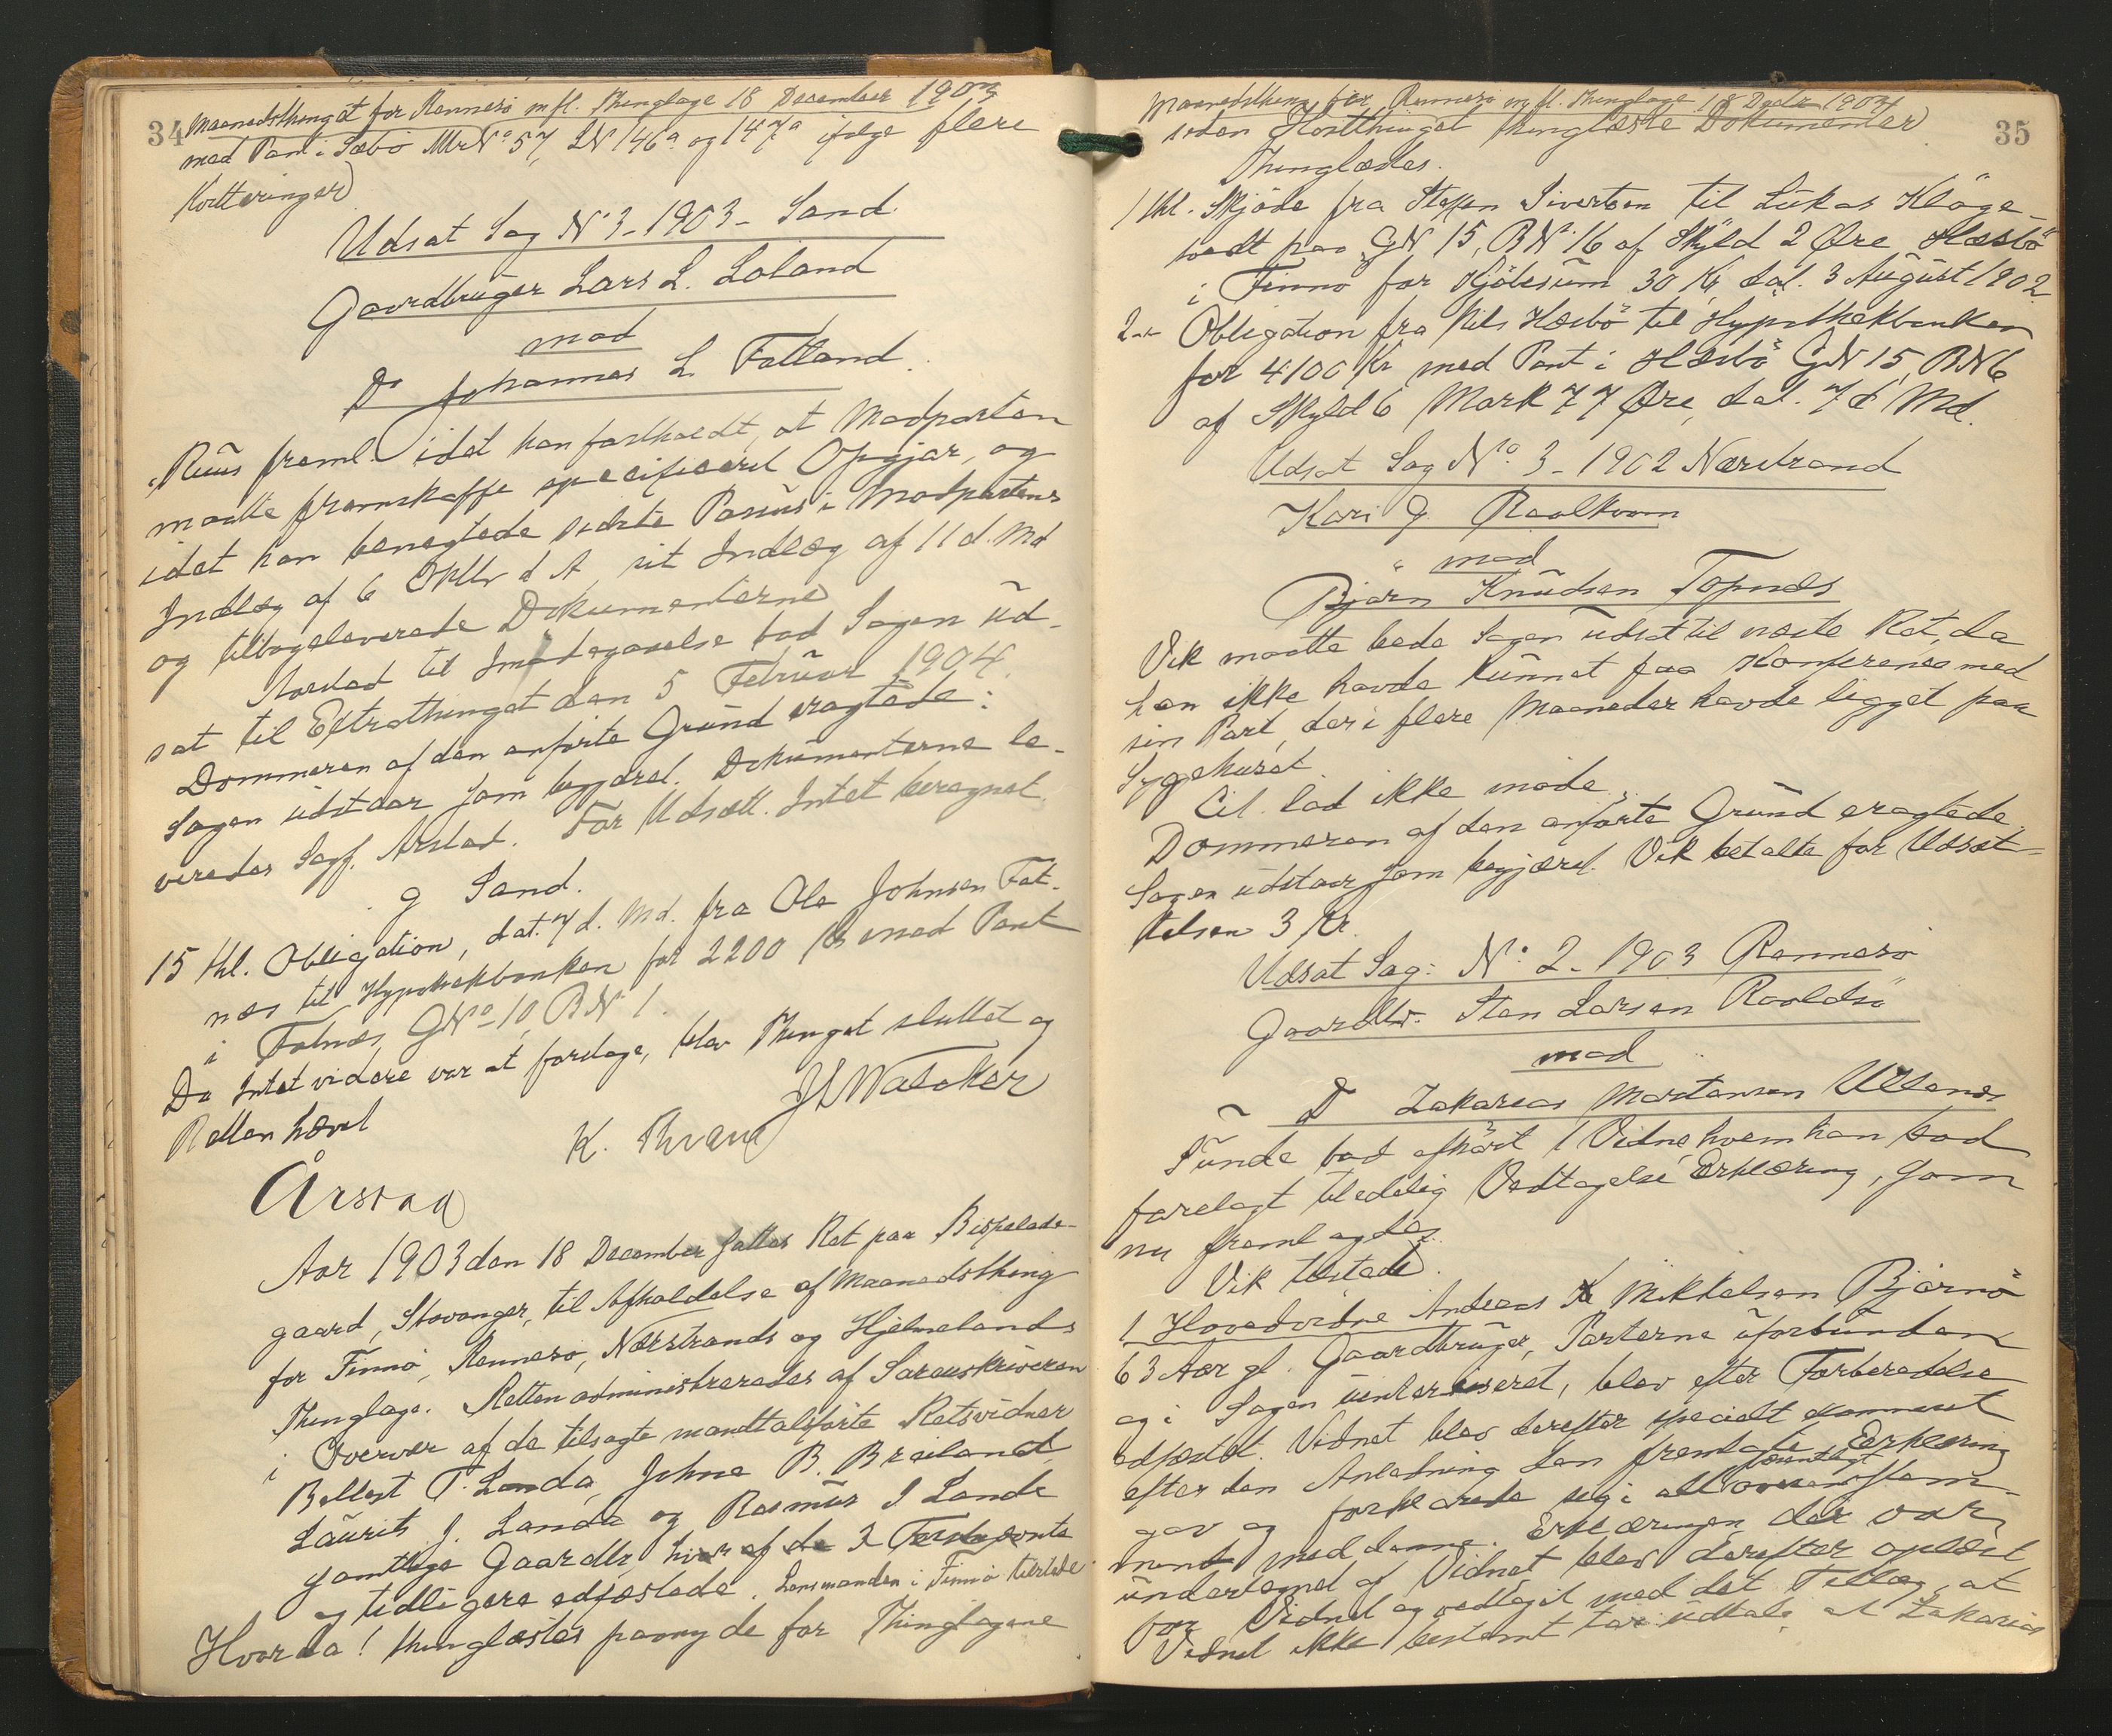 34 Maanedsthinget for Rennesö m fl. Thinglage 18 December 1903
med Pant i Sæbö Mr No 57, LN 146a og 147a ifølge flere
Kvitteringer
Udsat Sag No 3-1903- Sand
Gaardbruger Lars L. Löland
mod
Do Johannes L Fatland.
Ruus freml. idet han fastholdt, at Modparten
maatte fremskaffe specificeret Opgjør, og
idet han benegtede sidste Passus i Modpartens
Indlæg af 6 Oktbr d A, sit Indlæg af 11 d. Md
og tilbageleverede Dokumenterne
Aarstad til Imødegaaelse bad Sagen ud-
sat til Extrathinget den 5 Februar 1904.
Dommeren af den anførte Grund eragtede:
Sagen udstaar som begjæret. Dokumenterne le-
veredes Sagf. Arstad. For Udsætt. Intet beregnet
g Sand.
15 thl. Obligation, dat. 7 d. Md. fra Ole Johnsen Fat-
næs til Hypothekbanken for 2200 Kr med Pant
i Fatnæs, GNo 10, BN 1.
Da Intet videre var at foretage, blev Thinget sluttet og
Retten hævet
JLWatcker
K. Thrane
Årstad
Aar 1903 den 18 December sattes Ret paa Bispelade-
gaard, Stavanger, til Afholdelse af Maanedsthing
for Finnö, Rennesö, Nærstrands og Hjelmelands
Thinglage. Retten administreredes af Sorenskriveren
i Overvær af de tilsagte mandtalførte Retsvidner
Bellest T. Landa, Johne B. Breiland,
Laurits J. Landa og Rasmus I Lande
samtlige Gaardbr, hver af de 3 Førstnævnte
og tidligere edfæstede. Lensmanden i Finnö tilstede
Hvorda! thinglæstes paany de for Thinglagene
Maanedsthing for Rennesö m fl. Thinglage 18 Decbr 1903
35
siden Høstthinget thinglæste Dokumenter
Thinglæstes.
1 thl. Skjöde fra Steffen Sivertsen til Lukas Kløge-
tvedt paa GN 15, BN 16 af Skyld 2 Øre Hæsbö
i Finnö for Kjöbesum 30 Kr dat. 3 August 1902
2 - Obligation fra Nils Hæsbö til Hypothekbanken
for 4100 Kr med Pant i Hæsbö GN 15, BN 6
af Skyld 6 Mark 77 Øre, dat. 7 d Md.
Udsat Sag No. 3-1902 Nærstrand
Kari G Raalkvam
mod
Bjørn Knudsen Topnes
Vik maatte bede Sagen udsat til næste Ret, da
han ikke havde kunnet faa Konferense med
sin Part, der i flere Maaneder havde ligget paa
Sygehuset
Cit. lod ikke møde
Dommeren af den anførte Grund eragtede
Sagen udstaar som begjæret. Vik betalte for Udsæt-
telsen 3 Kr.
Udsat Sag: No. 2-1903 Rennesö
Gaardbr. Sten Larsen Roaldsö
mod
Do Zakarias Mortensen Utstenes
Tunde bad afhørt 1 Vidne hvem han bad
forelagt tiledelig Vedtagelse Erklæring, som
nu fremlagdes
Vik tilstede.
1 Hovedvidne Andreas Mikkelsen Bjørnö
63 Aar gl. Gaardbruger, Parterne uforbunden
og i Sagen uinteresseret, blev efter Forberedelse
edfæstet. Vidnet blev derefter specielt examineret
efter den Anledning den fremlagte Erklæring
gav og forklarede sig i alt væsentligt overensstem-
mende med denne. Erklæringen der var
undertegnet af Vidnet blev derefter oplæst
for Vidnet og vedtaget med det Tillæg, at
Vidnet ikke bestemt tør udtale, at Zakarias